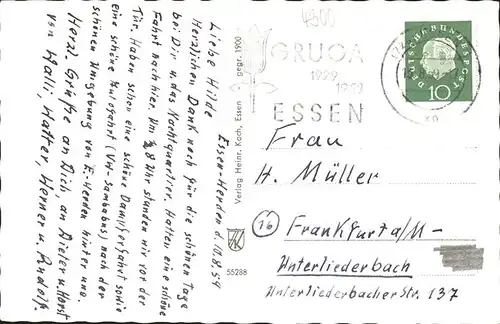 Essen-Werden d. 10.8.59
Liebe Hilde
Herzlichen Dank noch für die schönen Tage
bei Dir u. das Nachtquartier. Hatten eine schöne
Fahrt nach hier. Um 1/2 8 Uhr standen wir vor der
Tür. Haben schon eine schöne Dampferfahrt sowie
eine schöne Autofahrt nach der
schönen Umgebung von E-Werden hinter uns.
Herzl. Grüße an Dich, an Dieter u. Horst
von Walli, Walter, Werner u. Rudolf.
Verlag Heinr. Koch, Essen · gegr. 1900
55288
4300
GRUGA
1929
1959
ESSEN
DEUTSCHE BUNDESPOST
10
Frau
H. Müller
(16) Frankfurt a/M-
Unterliederbach
Unterliederbacher Str. 137